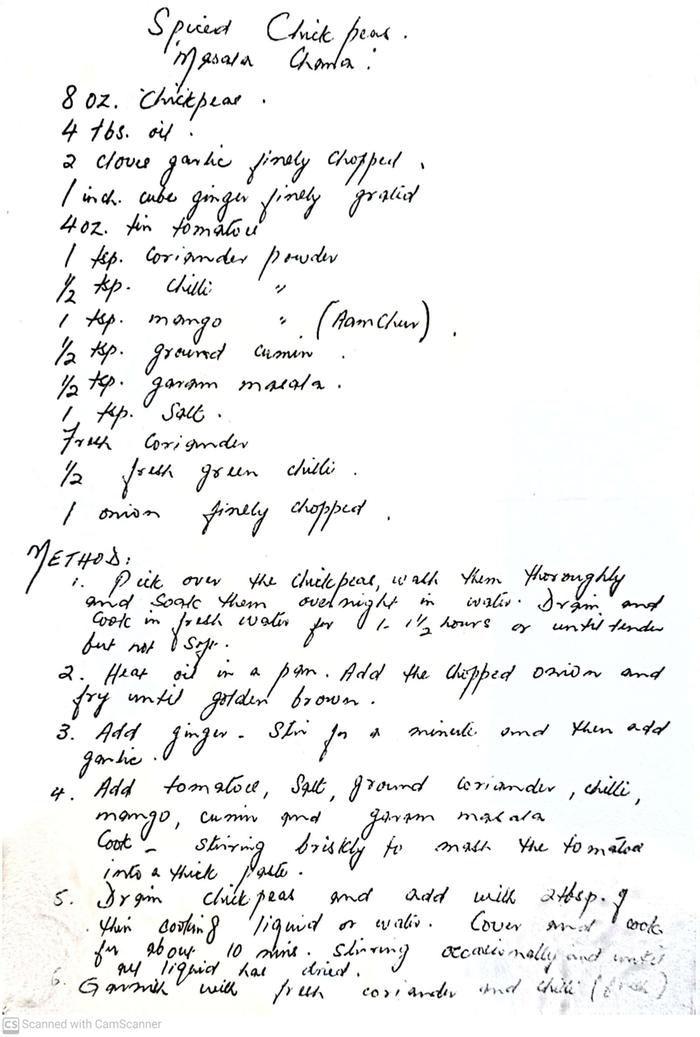 Spiced Chick peas.
"Masala Chana".
8 oz. Chickpeas.
4 tbs. oil.
2 cloves garlic finely chopped.
1 inch. cube ginger finely grated
4oz. tin tomatoes
1 tsp. coriander powder
1/2 tsp. chilli "
1 tsp. mango " (Aamchur).
1/2 tsp. ground cumin.
1/2 tsp. garam masala.
1 tsp. Salt.
Fresh coriander
1/2 fresh green chilli.
1 onion finely chopped.
METHOD:
1. Pick over the chickpeas, wash them thoroughly
and soak them overnight in water. Drain and
cook in fresh water for 1-1 1/2 hours or until tender
but not soft.
2. Heat oil in a pan. Add the chopped onion and
fry until golden brown.
3. Add ginger - Stir for a minute and then add
garlic.
4. Add tomatoes, Salt, ground coriander, chilli,
mango, cumin and garam masala
Cook - stirring briskly to mash the tomatoes
into a thick paste.
5. Drain chick peas and add with 2tbsp. of
their cooking liquid or water. Cover and cook
for about 10 mins. stirring occasionally and until
all liquid has dried.
6. Garnish with fresh coriander and chilli (fresh)
CS Scanned with CamScanner